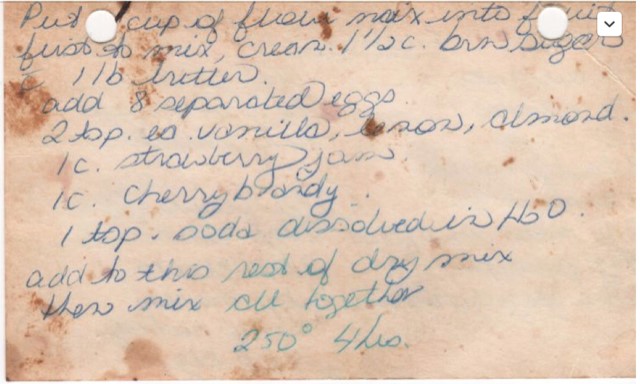 Put cup of flour mix into fruit
first to mix, cream 1 1/2 c. brn sugar
c̄ 1 lb butter.
add 8 separated eggs
2 tsp. ea. vanilla, lemon, almond.
1 c. strawberry jam.
1 c. cherry brandy.
1 tsp. soda dissolved in H2O.
add to this rest of dry mix
then mix all together
250° 4 hrs.